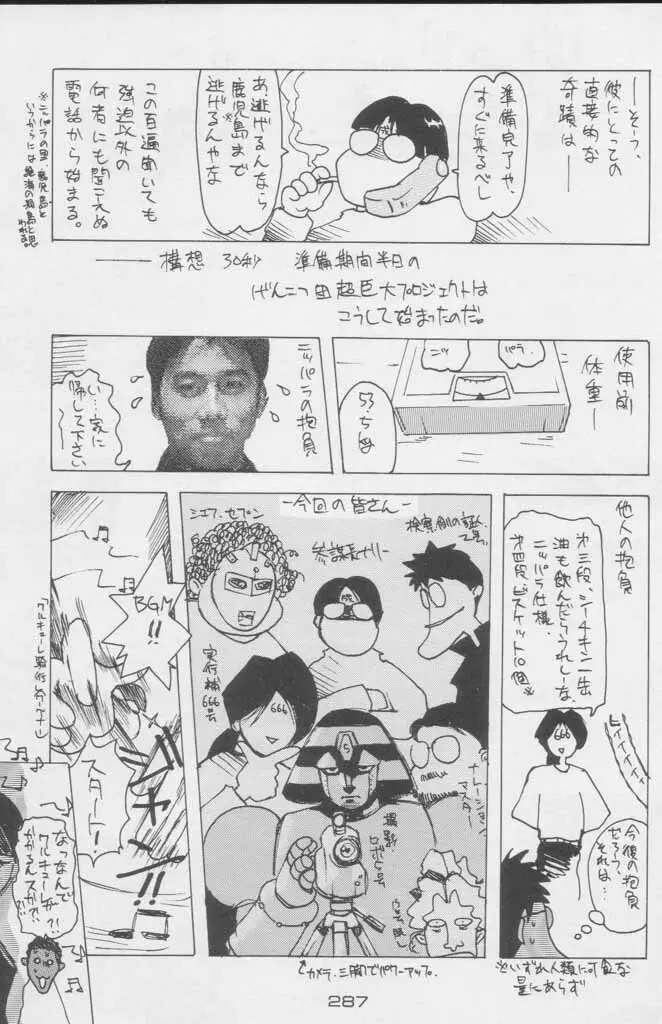 ――そう、
彼にとっての
直接的な
奇蹟は――
準備完了や、
すぐに来るべし
あ、逃げるんなら
鹿児島※まで
逃げるんやな
この百遍聞いても
強迫以外の
何者にも聞こえぬ
電話から始まる。
※ニッパラの里・鹿児島と
いうからには絶海の孤島と思
われる。
――構想 30秒 準備期間半日の
げんこつ団超巨大プロジェクトは
こうして始まったのだ。
使用前
体重―
ニッ
パラ
53.5kg
ニッパラの抱負
い…家に
帰して下さい
他人の抱負
才三段、シーチキン一缶
油も飲んだらうれしーな、
ニッパラ仕様、
才四段、ビスケット10個※
ヒィィィィィ
666
今後の抱負
だろう、
それは…
※いずれ人類に可食な
量にあらず
―今回の皆さん―
シェフ・セブン
参謀長
検察側の証人
乙号。
実行補
666号
666
5
ナレーション
マスター
撮影・
ロボ
カメラ、三脚でパワーアップ。
BGM
!!
スタート!
ジャキン!!
なっなんで
ワルキューレが
かかるんスか?!
?!
287